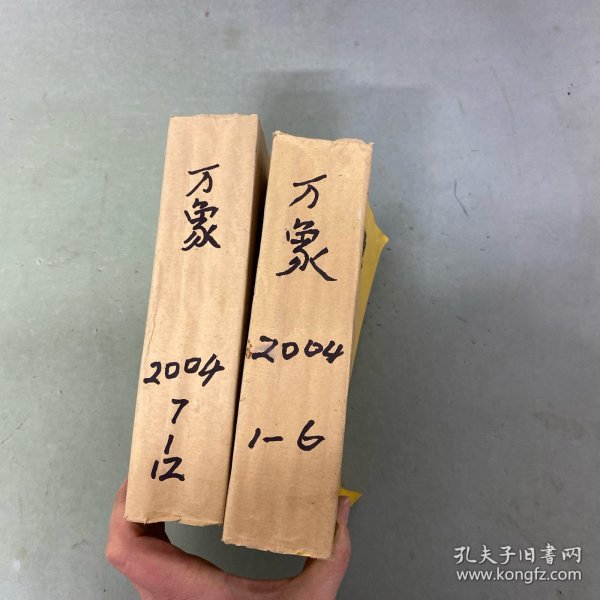 万
象
2004
7
1
12
万
象
2004
1-6
孔夫子旧書网
www.kongfz.com